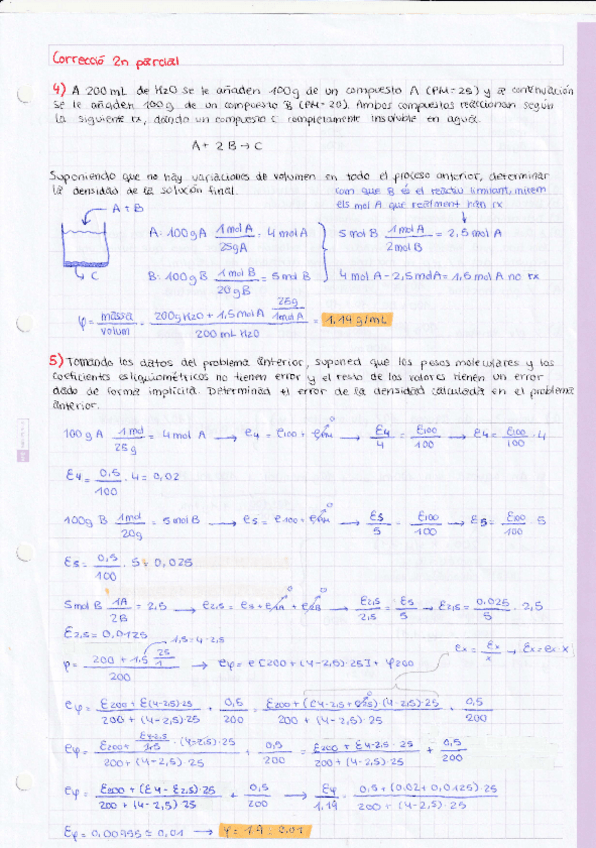 Correcció 2n parcial
4) A 200 mL de H2O se le añaden 100g de un compuesto A (PM=25) y a continuación
se le añaden 100g de un compuesto B (PM=20). Ambos compuestos reaccionan según
la siguiente rx, dando un compuesto C completamente insoluble en agua.
A + 2B → C
Suponiendo que no hay variaciones de volumen en todo el proceso anterior, determinar
la densidad de la solución final.
com que B és el reactiu limitant, mirem
els mol A que realment han rx
A + B
C
A: 100g A 1 mol A / 25g A = 4 mol A
5 mol B 1 mol A / 2 mol B = 2,5 mol A
B: 100g B 1 mol B / 20g B = 5 mol B
4 mol A - 2,5 mol A = 1,5 mol A no rx
φ = massa / volum = 200g H2O + 1,5 mol A 25g / 1 mol A / 200 mL H2O = 1,14 g/mL
5) Tomando los datos del problema anterior, suponed que los pesos moleculares y los
coeficientes estequiométricos no tienen error y el resto de los valores tienen un error
dado de forma implícita. Determinad el error de la densidad calculada en el problema
anterior.
100g A 1 mol / 25g = 4 mol A → e4 = e100 + ePM 0 → ε4 / 4 = ε100 / 100 → ε4 = ε100 / 100 · 4
ε4 = 0,5 / 100 · 4 = 0,02
100g B 1 mol / 20g = 5 mol B → e5 = e100 + ePM 0 → ε5 / 5 = ε100 / 100 → ε5 = ε100 / 100 · 5
ε5 = 0,5 / 100 · 5 = 0,025
5 mol B 1A / 2B = 2,5 → e2,5 = e5 + e1A 0 + e2B 0 → ε2,5 / 2,5 = ε5 / 5 → ε2,5 = 0,025 / 5 · 2,5
ε2,5 = 0,0125
1,5 = 4 - 2,5
ρ = 200 + 1,5 25 / 1 / 200 → eφ = e[200 + (4-2,5)·25] + φ200
ex = εx / x → εx = ex · x
eφ = ε200 + ε(4-2,5)·25 / 200 + (4-2,5)·25 + 0,5 / 200 = ε200 + (e4-2,5 + e25) 0 · (4-2,5)·25 / 200 + (4-2,5)·25 + 0,5 / 200
eφ = ε200 + ε4-2,5 / 1,5 · (4-2,5)·25 / 200 + (4-2,5)·25 + 0,5 / 200 = ε200 + ε4-2,5 · 25 / 200 + (4-2,5)·25 + 0,5 / 200
eφ = ε200 + (ε4 - ε2,5)·25 / 200 + (4-2,5)·25 + 0,5 / 200 → εφ / 1,19 = 0,5 + (0,02 + 0,0125)·25 / 200 + (4-2,5)·25
εφ = 0,00955 ≅ 0,01 → φ = 1,19 ± 0,01